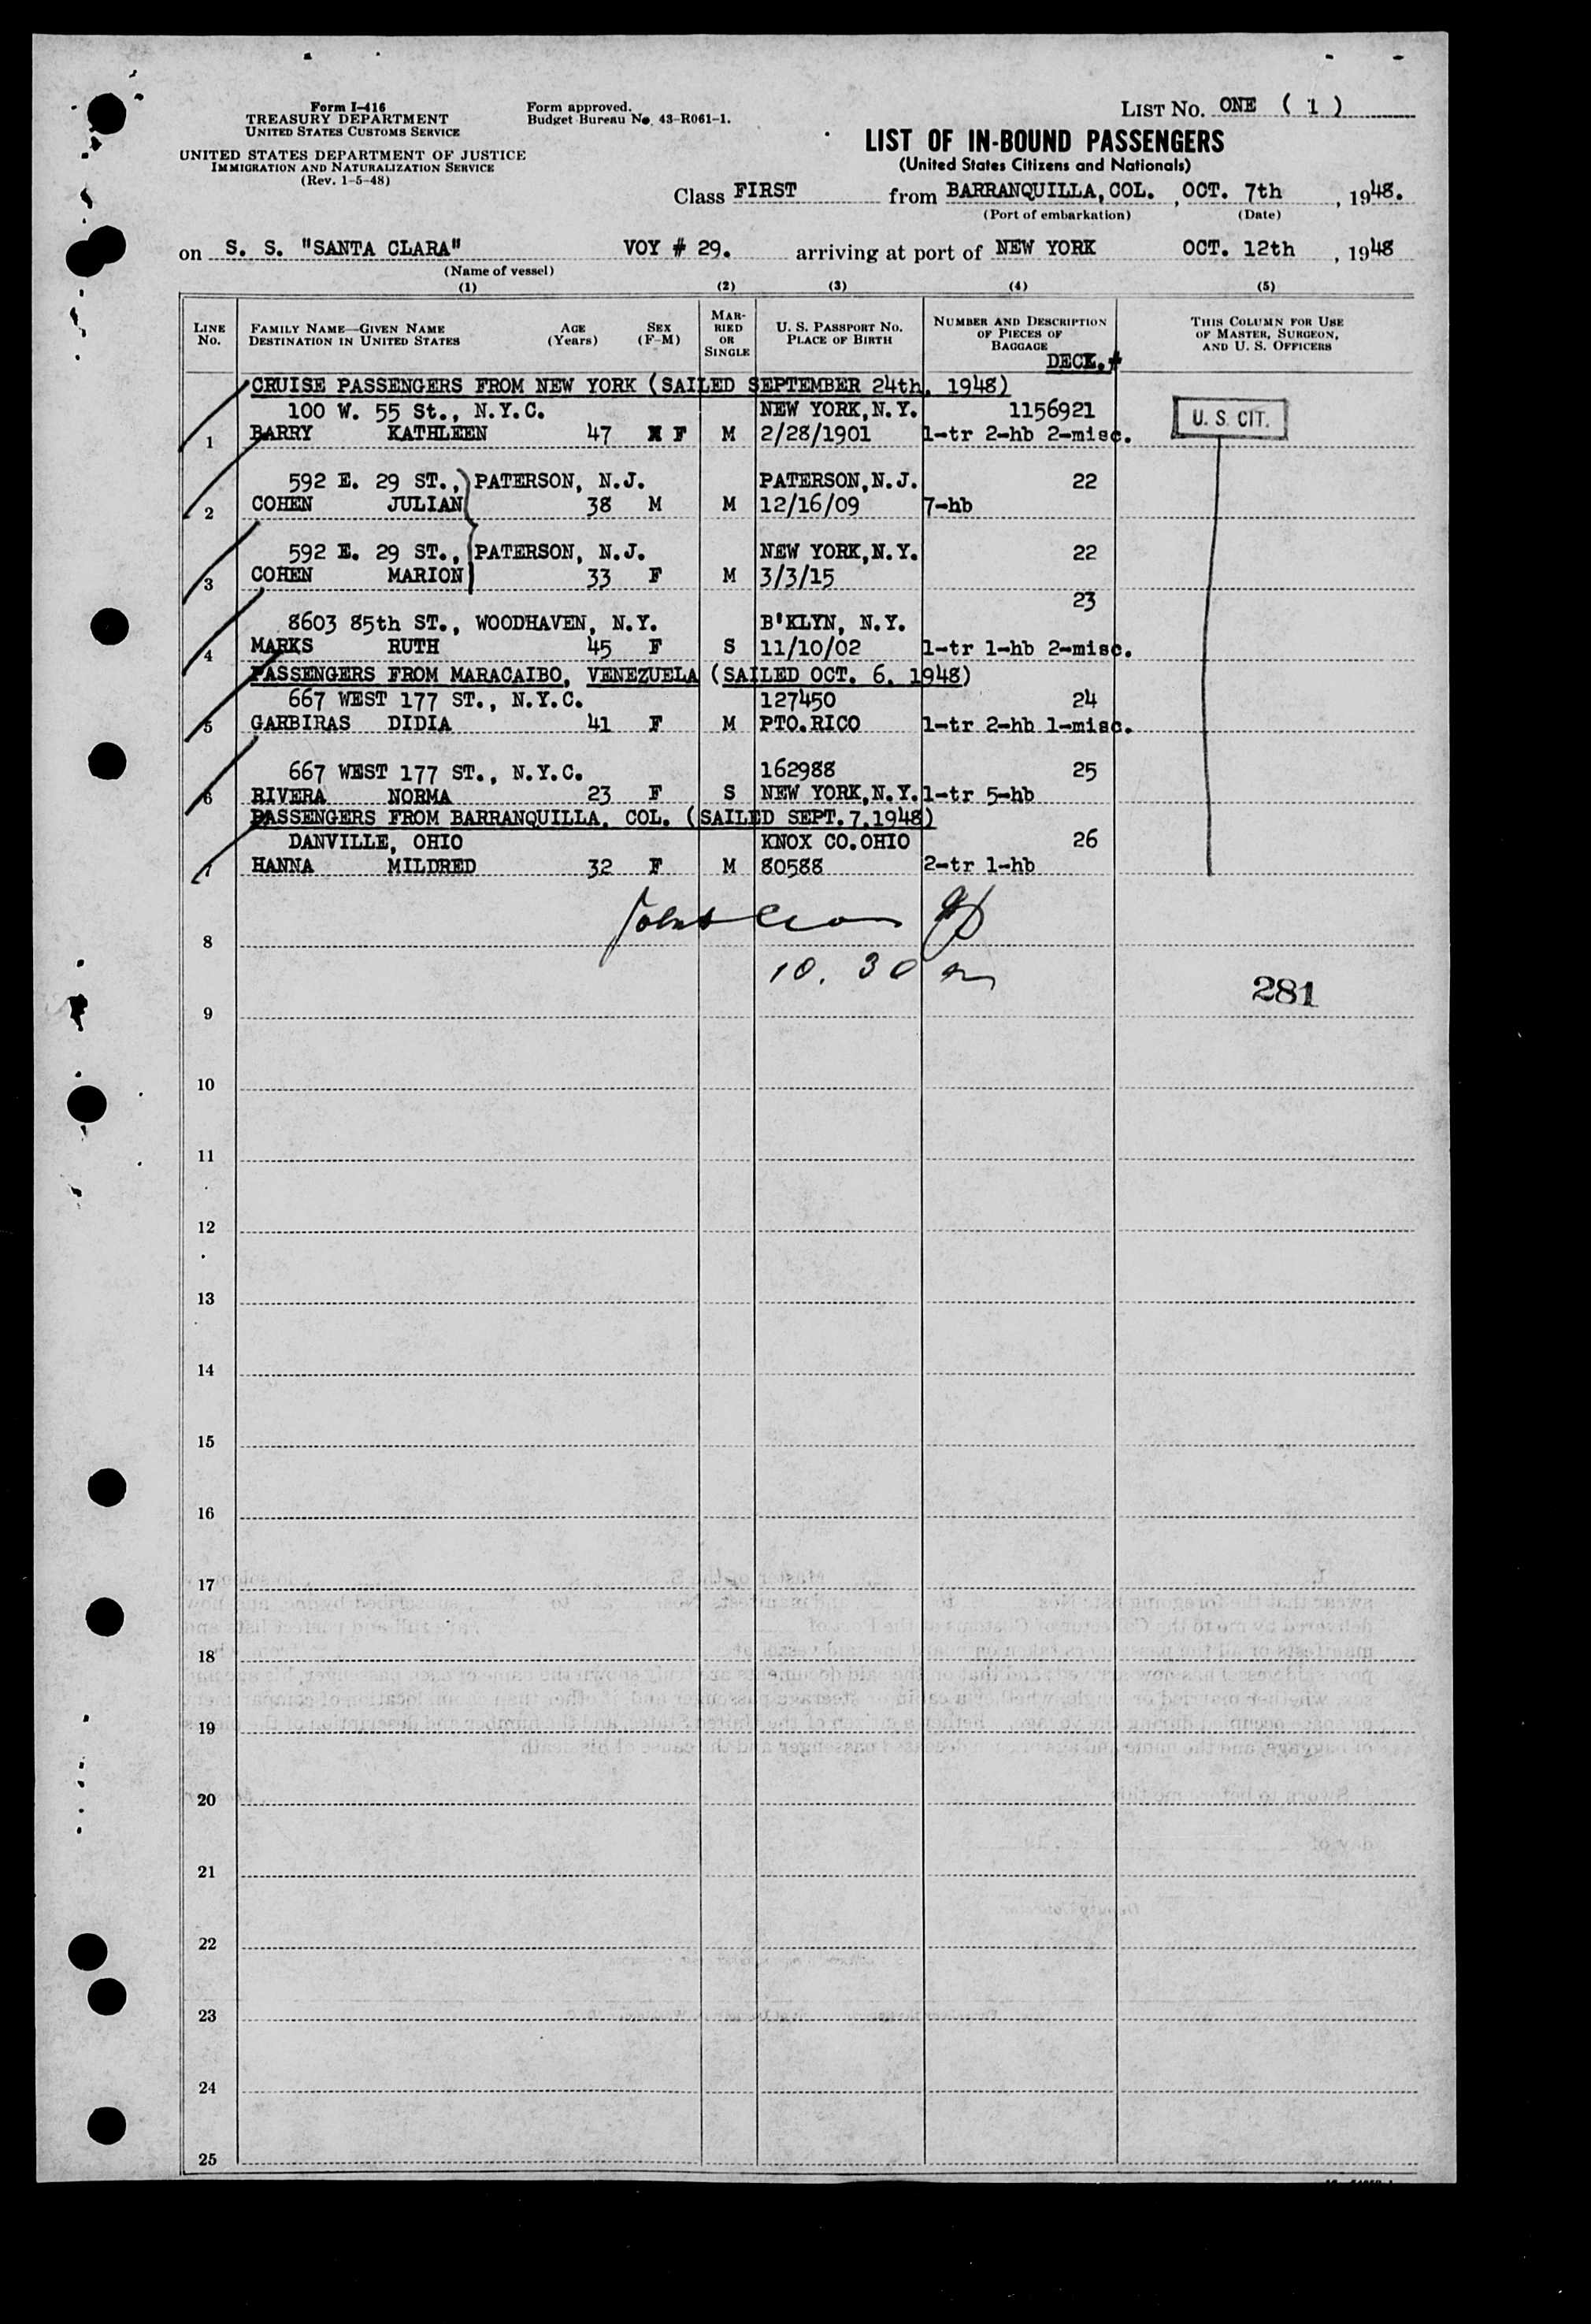 Form I-416
TREASURY DEPARTMENT
UNITED STATES CUSTOMS SERVICE
UNITED STATES DEPARTMENT OF JUSTICE
IMMIGRATION AND NATURALIZATION SERVICE
(Rev. 1-5-48)
Form approved.
Budget Bureau No. 43-R061-1.
LIST No. ONE ( 1 )
LIST OF IN-BOUND PASSENGERS
(United States Citizens and Nationals)
Class FIRST from BARRANQUILLA, COL. , OCT. 7th , 1948.
(Port of embarkation) (Date)
on S. S. "SANTA CLARA" VOY # 29. arriving at port of NEW YORK OCT. 12th , 1948
(Name of vessel)
(1) (2) (3) (4) (5)
LINE No. FAMILY NAME—GIVEN NAME DESTINATION IN UNITED STATES AGE (Years) SEX (F-M) MARRIED OR SINGLE U. S. PASSPORT NO. PLACE OF BIRTH NUMBER AND DESCRIPTION OF PIECES OF BAGGAGE THIS COLUMN FOR USE OF MASTER, SURGEON, AND U. S. OFFICERS
DECK.#
CRUISE PASSENGERS FROM NEW YORK (SAILED SEPTEMBER 24th, 1948)
100 W. 55 St., N.Y.C. NEW YORK,N.Y. 1156921 U. S. CIT.
1 BARRY KATHLEEN 47 X F M 2/28/1901 1-tr 2-hb 2-misc.
592 E. 29 ST., PATERSON, N.J. PATERSON,N.J. 22
2 COHEN JULIAN 38 M M 12/16/09 7-hb
592 E. 29 ST., PATERSON, N.J. NEW YORK,N.Y. 22
3 COHEN MARION 33 F M 3/3/15
23
8603 85th ST., WOODHAVEN, N.Y. B'KLYN, N.Y.
4 MARKS RUTH 45 F S 11/10/02 1-tr 1-hb 2-misc.
PASSENGERS FROM MARACAIBO, VENEZUELA (SAILED OCT. 6, 1948)
667 WEST 177 ST., N.Y.C. 127450 24
5 GARBIRAS DIDIA 41 F M PTO.RICO 1-tr 2-hb 1-misc.
667 WEST 177 ST., N.Y.C. 162988 25
6 RIVERA NORMA 23 F S NEW YORK,N.Y. 1-tr 5-hb
PASSENGERS FROM BARRANQUILLA, COL. (SAILED SEPT.7,1948)
DANVILLE, OHIO KNOX CO.OHIO 26
7 HANNA MILDRED 32 F M 80588 2-tr 1-hb
8
10.30 am
281
9
10
11
12
13
14
15
16
17
18
19
20
21
22
23
24
25